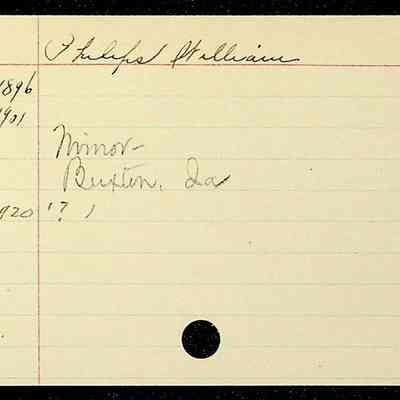 Philips William
1896
1901
Minor-
Buxton, Ia
1920 '? )